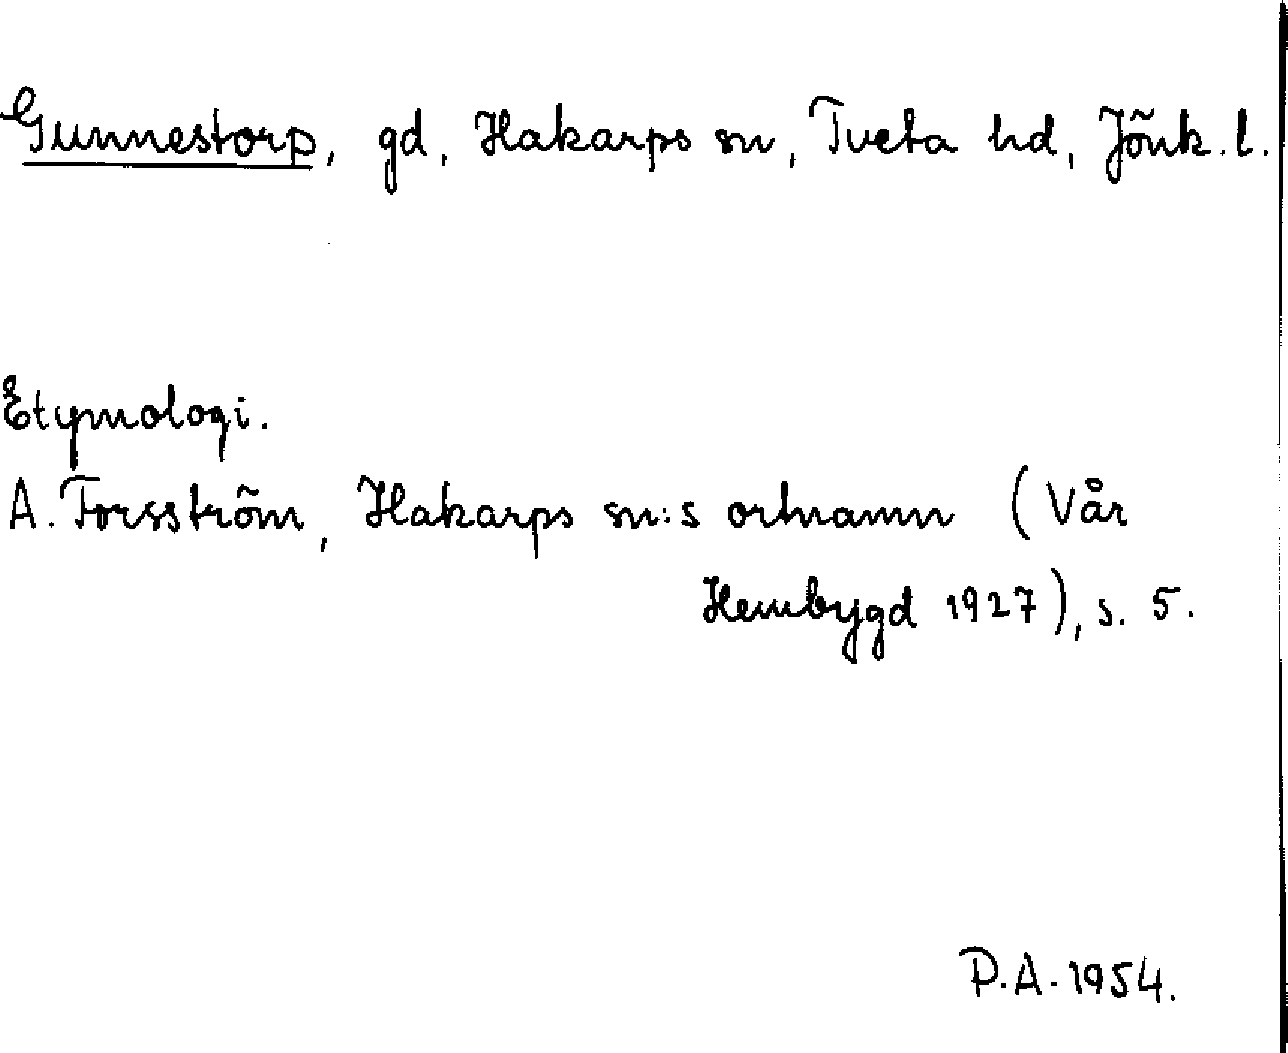 Gunnestorp, gd, Hakarps sn, Tveta hd, Jönk. l.
Etymologi.
A. Forsström, Hakarps sn:s ortnamn (Vår
Hembygd 1927), s. 5.
P.A. 1954.